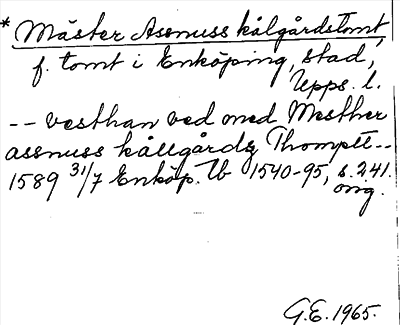 * Mäster Assnuss kålgårdstomt
f. tomt i Enköping, stad,
Upps. l.
-- vesthan ved med Mesther
assnuss kållgårdz Thomptt --
1589 31/7 Enköp. Tb 1540-95, s. 241.
orig.
G.E. 1965.